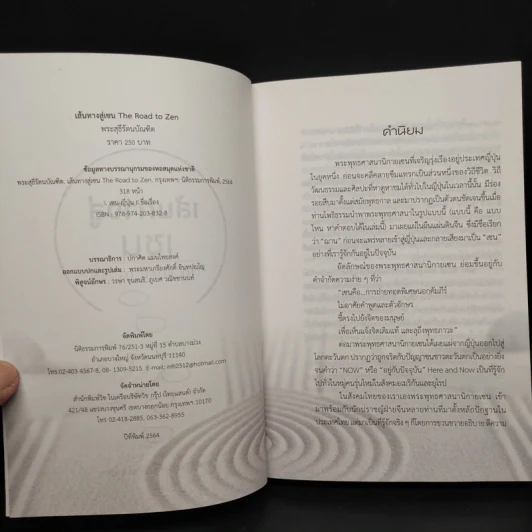 เส้นทางสู่เซน The Road to Zen
พระสุธีรัตนบัณฑิต
ราคา 250 บาท
ข้อมูลทางบรรณานุกรมของหอสมุดแห่งชาติ
พระสุธีรัตนบัณฑิต. เส้นทางสู่เซน The Road to Zen. กรุงเทพฯ: นิติธรรมการพิมพ์, 2564
318 หน้า
1. เซน-ญี่ปุ่น I ชื่อเรื่อง
ISBN : 978-974-203-832-8
บรรณาธิการ : ปกาศิต แมนไทยสงค์
ออกแบบปกและรูปเล่ม : พระมหาเกรียงศักดิ์ อินฺทปญฺโญ
พิสูจน์อักษร : วรษา ขุนสนธิ, ภูเบศ วณิชชานนท์
จัดพิมพ์โดย
นิติธรรมการพิมพ์ 76/251-3 หมู่ที่ 15 ตำบลบางม่วง
อำเภอบางใหญ่ จังหวัดนนทบุรี 11140
โทร.02-403-4567-8, 08-1309-5215. E-mail; niti2512@hotmail.com
จัดจำหน่ายโดย
421/48 แขวงบางขุนศรี เขตบางกอกน้อย กรุงเทพฯ 10170
โทร 02-418-2885, 063-362-8955
ปีที่พิมพ์ 2564
คำนิยม
พระพุทธศาสนานิกายเซนที่เจริญรุ่งเรืองอยู่ประเทศญี่ปุ่น
ในยุคหนึ่ง ก่อนจะคลี่คลายซึมแทรกเป็นส่วนหนึ่งของวิถีชีวิต วิถี
วัฒนธรรมและศิลปะที่หาดูหาชมได้ทั่วไปในญี่ปุ่นในเวลานี้นั้น มีร่อง
รอยสืบมาตั้งแต่สมัยพุทธกาล และมาปรากฏเป็นตัวตนชัดเจนขึ้นเมื่อ
ท่านโพธิธรรมนำพาพระพุทธศาสนาในรูปแบบนี้ (แบบนี้ คือ แบบ
ไหน หาคำตอบได้ในเล่มนี้) มาเผยแผ่ในผืนแผ่นดินจีน ซึ่งมีชื่อเรียก
ว่า “ฌาน” ก่อนจะแพร่หลายเข้าสู่ญี่ปุ่นและกลายเสียงมาเป็น “เซน”
อย่างที่เรารู้จักกันอยู่ในปัจจุบัน
อัตลักษณ์ของพระพุทธศาสนานิกายเซน ย่อมขึ้นอยู่กับ
คำจำกัดความง่าย ๆ ที่ว่า
“เซนคือ...การถ่ายทอดพิเศษนอกคัมภีร์
ไม่อาศัยคำพูดและตัวอักษร
ชี้ตรงไปยังจิตของมนุษย์
เพื่อเห็นแจ้งจิตเดิมแท้ และลุถึงพุทธภาวะ”
ต่อมาพระพุทธศาสนานิกายเซนได้เผยแผ่จากญี่ปุ่นออกไปสู่
โลกตะวันตก ปรากฏว่าถูกจริตกับปัญญาชนชาวตะวันตกเป็นอย่างยิ่ง
จนคำว่า “NOW” หรือ “อยู่กับปัจจุบัน” Here and Now เป็นที่รู้จัก
ไปทั่วในหมู่คนรุ่นใหม่ในสังคมอเมริกันและยุโรป
ในสังคมไทยของเราเองพระพุทธศาสนานิกายเซน เข้า
มาพร้อมกับนักปราชญ์ฝ่ายจีนหลายท่านที่มาตั้งหลักปักฐานใน
ประเทศไทย แต่มาเป็นที่รู้จักจริง ๆ ก็โดยการขวนขวายอธิบาย ตีความ